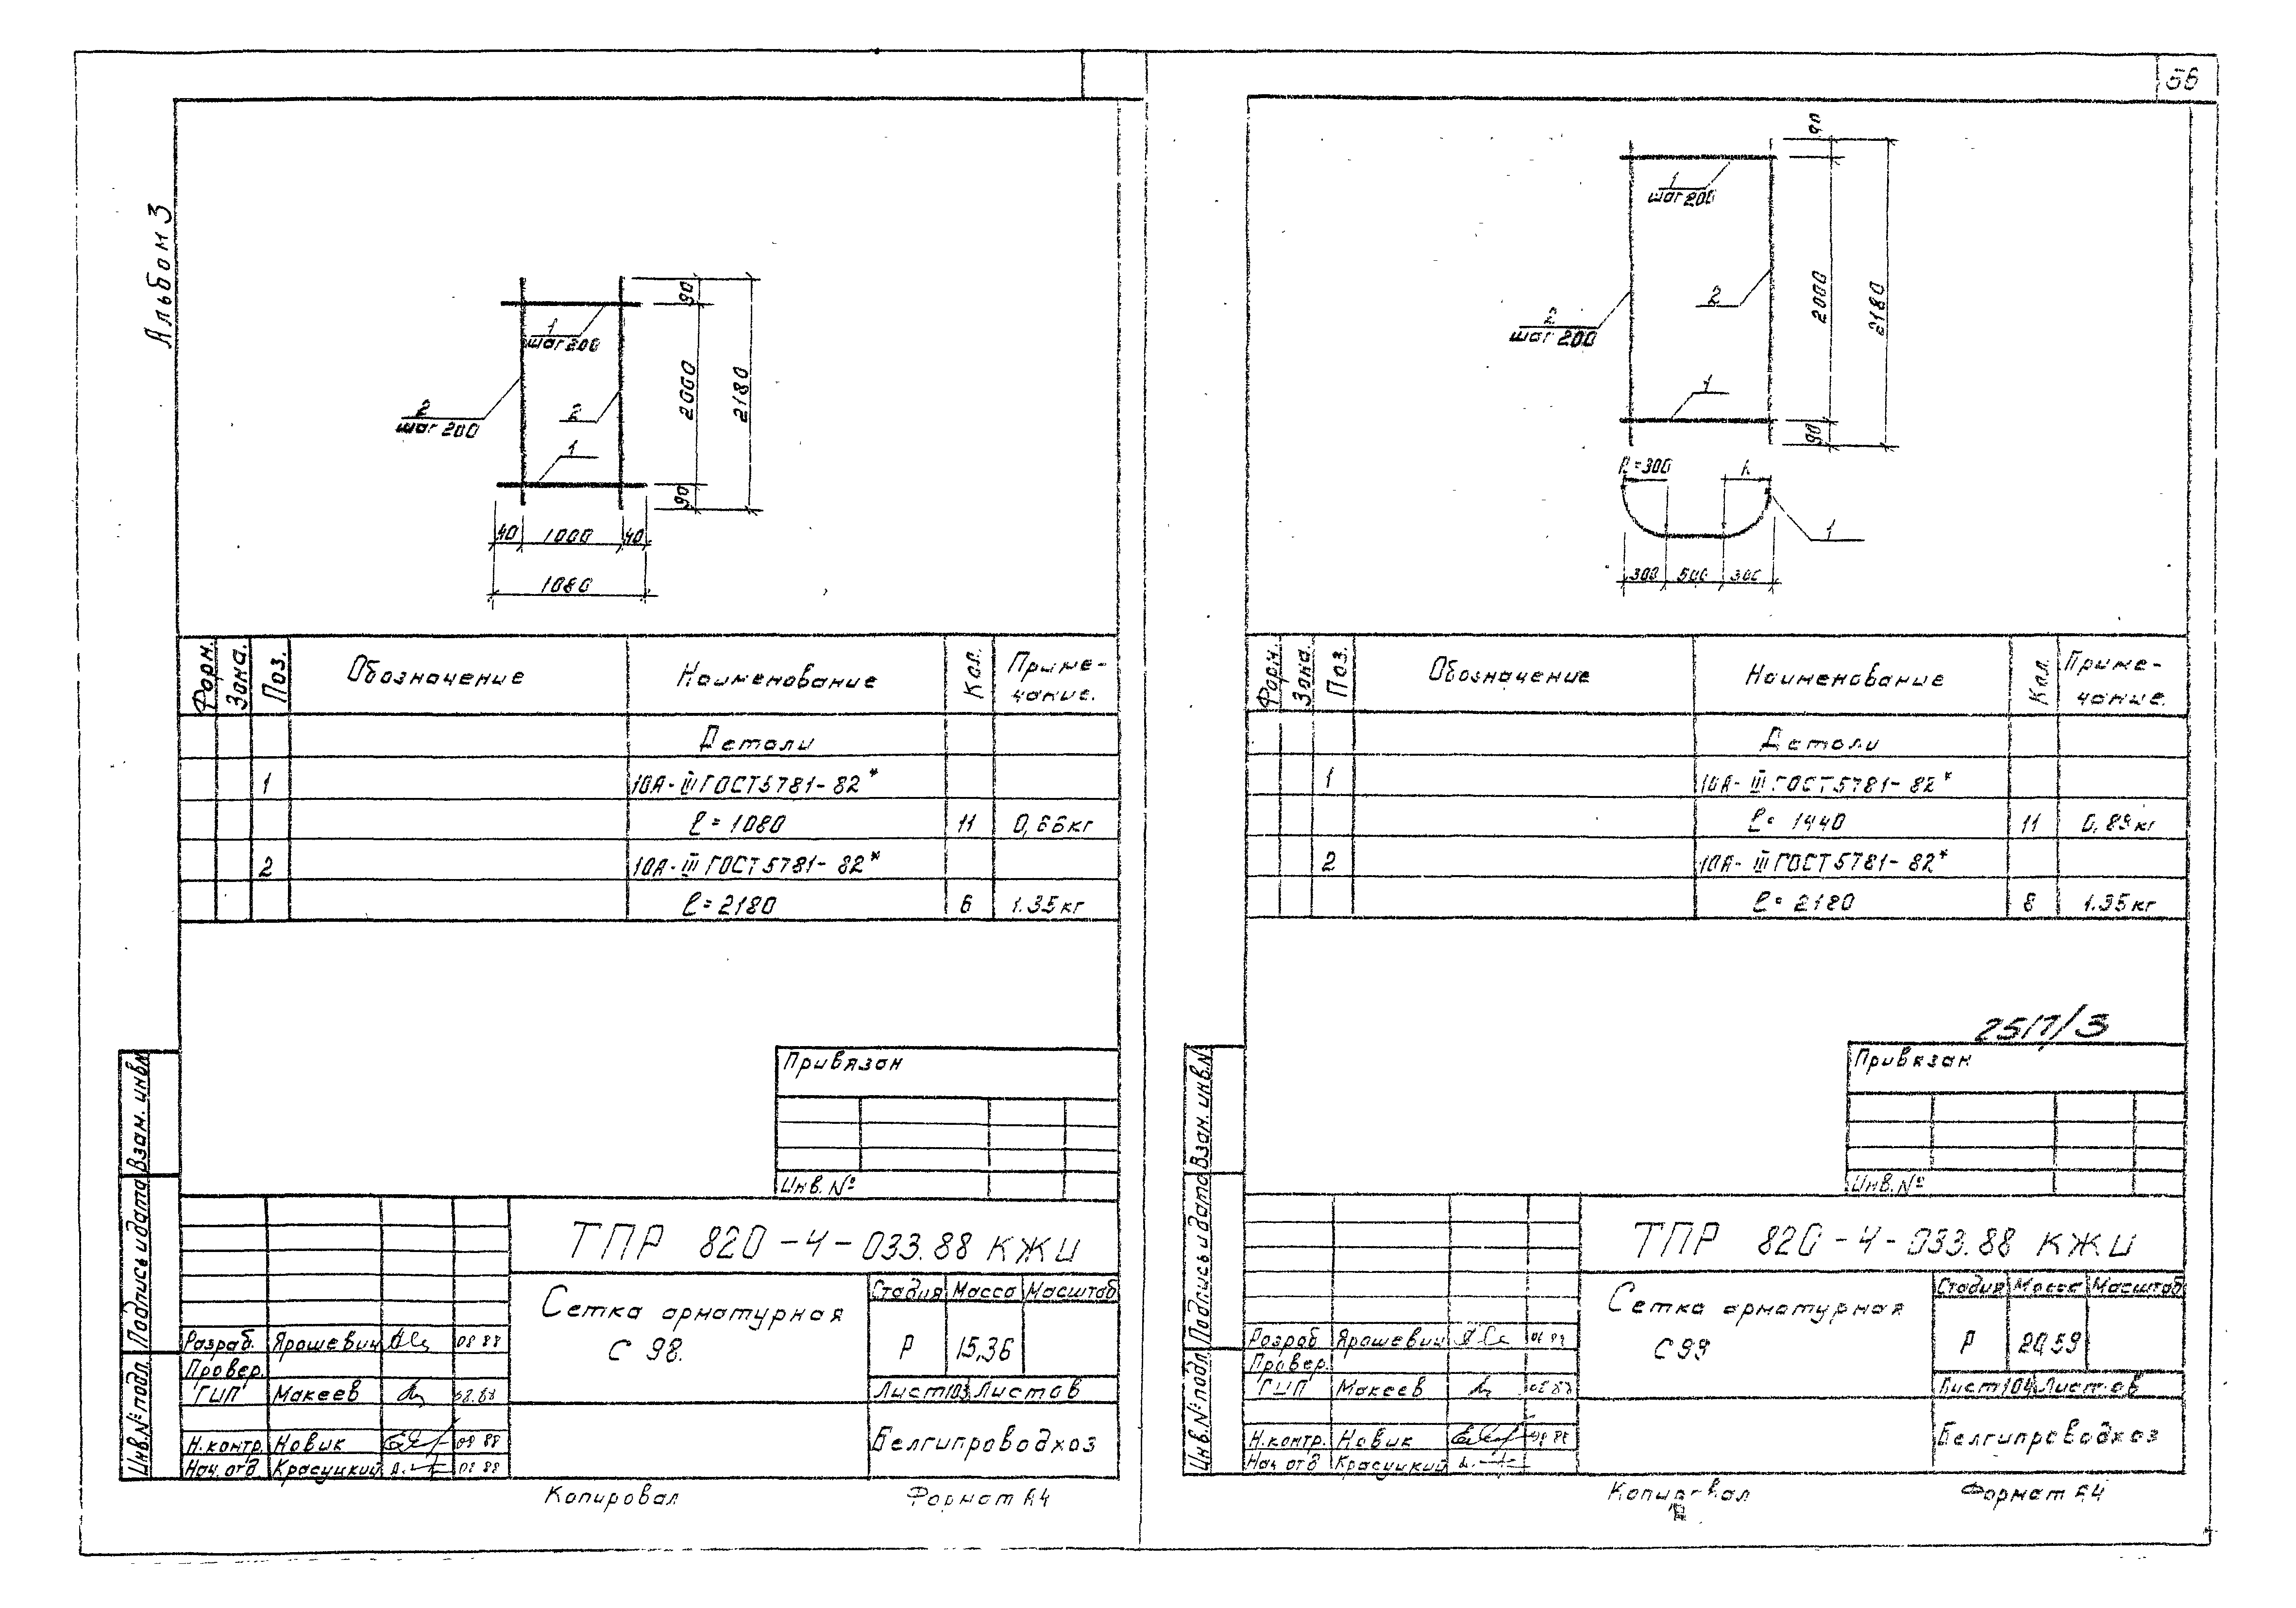 56
Альбом 3
90
1
шаг 200
2
шаг 200
2
1
2000
2180
90
40 1000 40
1080
Форм. Зона. Поз. Обозначение Наименование Кол. Приме-
чание.
Детали
1 10А-III ГОСТ 5781-82*
ℓ=1080 11 0,66кг
2 10А-III ГОСТ 5781-82*
ℓ=2180 6 1.35кг
Привязан
Инв.№
Взам. инв.№
Подпись и дата
Инв.№ подл.
ТПР 820-4-033.88 КЖИ
Сетка арматурная
С 98.
Стадия Масса Масштаб
Р 15,36
Лист 103 Листов
Белгипроводхоз
Разраб. Ярошевич 08 88
Провер.
ГИП Макеев 08.88
Н.контр. Новик 08 88
Нач. отд Красуцкий 08 88
Копировал Формат А4
90
1
шаг 200
2
шаг 200
2
1
2000
2180
90
R=300 R
1
300 500 300
Форм. Зона. Поз. Обозначение Наименование Кол. Приме-
чание.
Детали
1 10А-III ГОСТ 5781-82*
ℓ=1440 11 0,89кг
2 10А-III ГОСТ 5781-82*
ℓ=2180 8 1.35кг
2517/3
Привязан
Инв.№
Взам. инв.№
Подпись и дата
Инв.№ подл.
ТПР 820-4-033.88 КЖИ
Сетка арматурная
С 99
Стадия Масса Масштаб
Р 20,59
Лист 104 Листов
Белгипроводхоз
Разраб Ярошевич
Провер.
ГИП Макеев 08 88
Н.контр. Новик 08 88
Нач. отд Красуцкий
Копировал Формат А4